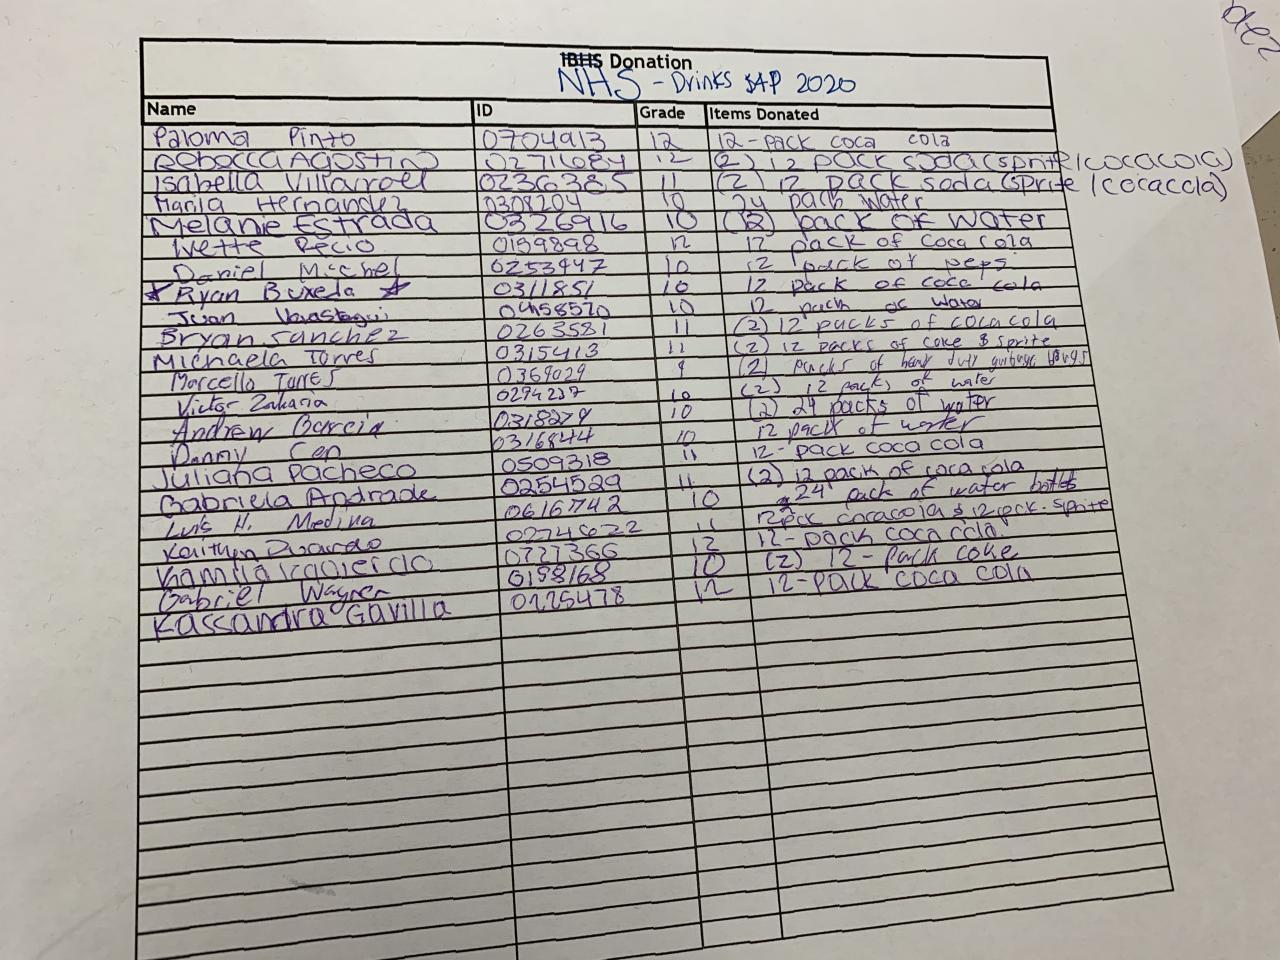 IBHS Donation
NHS - Drinks SAP 2020
Name ID Grade Items Donated
Paloma Pinto 0704913 12 12-pack coca cola
Rebecca Agostino 02716084 12 (2) 12 pack soda (sprite/cocacola)
Isabella Villarroel 02363285 11 (2) 12 pack soda (sprite/cocacola)
Marila Hernandez 0308204 10 24 pack water
Melanie Estrada 0326916 10 (2) pack of water
Ivette Recio 0159898 12 12 pack of coca cola
Daniel Michel 0253447 10 12 pack of peps
Ryan Buxeda 0311851 10 12 pack of coca cola
Juan 0458520 10 12 pack of water
Bryan Sanchez 0263581 11 (2) 12 packs of coca cola
Michaela Torres 0315413 11 (2) 12 packs of coke & sprite
Marcello Torres 0369029 9 (2) packs of heavy duty garbage bags
Victor Zakaria 0294237 10 (2) 12 packs of water
Andrew Garcia 0318279 10 (2) 24 packs of water
Danny Cen 0316844 10 12 pack of water
Juliana Pacheco 0509318 11 12-pack coca cola
Gabriela Andrade 0254529 11 (2) 12 pack of coca cola
Luis H. Medina 0616742 10 24 pack of water bottles
Kaithyn 0274622 11 12pck cocacola & 12pck. sprite
Kamila Izquierdo 0727366 12 12-pack coca cola
Gabriel Wagner 0158168 10 (2) 12-pack coke
Kassandra Gavilla 0225478 12 12-pack coca cola
dez